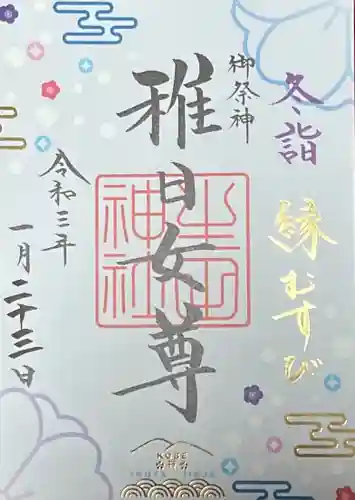 冬詣
縁むすび
御祭神
稚日女尊
生田神社
令和三年
一月二十三日
KOBE